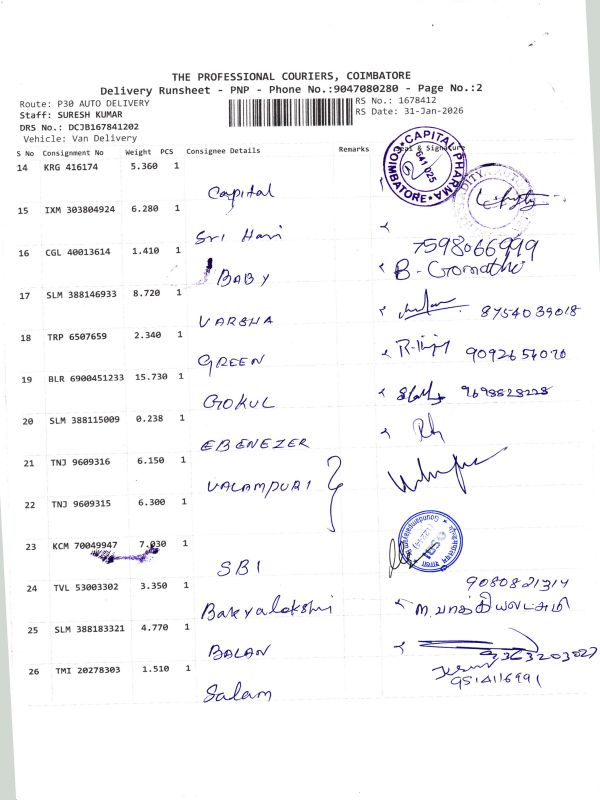 THE PROFESSIONAL COURIERS, COIMBATORE
Delivery Runsheet - PNP - Phone No.:9047080280 - Page No.:2
Route: P30 AUTO DELIVERY
RS No.: 1678412
Staff: SURESH KUMAR
RS Date: 31-Jan-2026
DRS No.: DCJB167841202
Vehicle: Van Delivery
S No Consignment No Weight PCS Consignee Details Remarks & Signature
14 KRG 416174 5.360 1
Capital
CAPITAL PHARMA
641 025
COIMBATORE
15 IXM 303804924 6.280 1
Sri Hari
16 CGL 40013614 1.410 1
7598066999
BABY
B. Gomathi
17 SLM 388146933 8.720 1
VARSHA
8754039018
18 TRP 6507659 2.340 1
GREEN
9092654070
19 BLR 6900451233 15.730 1
GOKUL
9698828228
20 SLM 388115009 0.238 1
EBENEZER
21 TNJ 9609316 6.150 1
VALAMPURI
22 TNJ 9609315 6.300 1
23 KCM 70049947 7.030 1
SBI
24 TVL 53003302 3.350 1
9080821314
Bakyalakshmi
M. பாக்கியலட்சுமி
25 SLM 388183321 4.770 1
BALAN
9363203027
26 TMI 20278303 1.510 1
9514116991
Salam